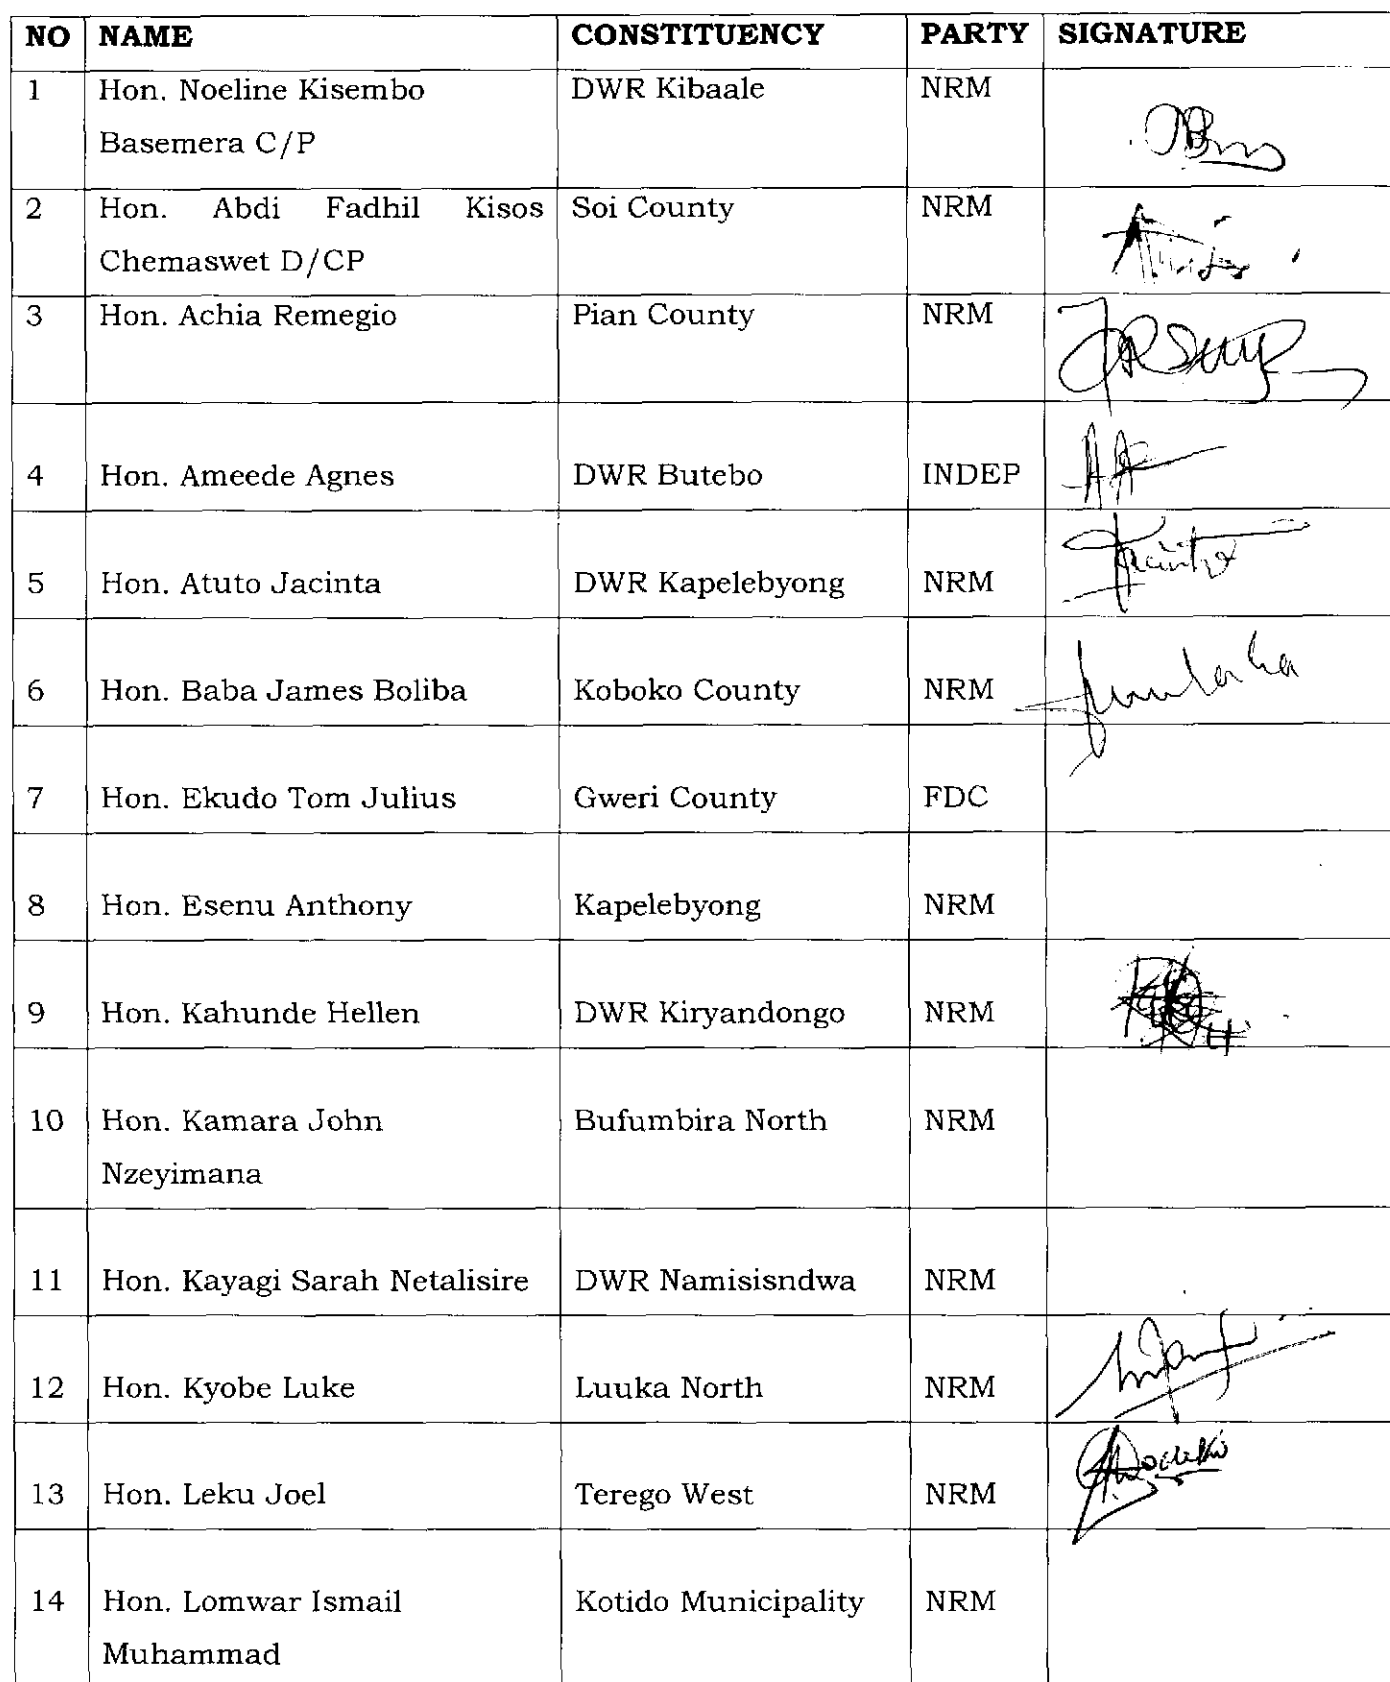 NO NAME CONSTITUENCY PARTY SIGNATURE
1 Hon. Noeline Kisembo DWR Kibaale NRM
Basemera C/P
2 Hon. Abdi Fadhil Kisos Soi County NRM
Chemaswet D/CP
3 Hon. Achia Remegio Pian County NRM
4 Hon. Ameede Agnes DWR Butebo INDEP
5 Hon. Atuto Jacinta DWR Kapelebyong NRM
6 Hon. Baba James Boliba Koboko County NRM
7 Hon. Ekudo Tom Julius Gweri County FDC
8 Hon. Esenu Anthony Kapelebyong NRM
9 Hon. Kahunde Hellen DWR Kiryandongo NRM
10 Hon. Kamara John Bufumbira North NRM
Nzeyimana
11 Hon. Kayagi Sarah Netalisire DWR Namisisndwa NRM
12 Hon. Kyobe Luke Luuka North NRM
13 Hon. Leku Joel Terego West NRM
14 Hon. Lomwar Ismail Kotido Municipality NRM
Muhammad